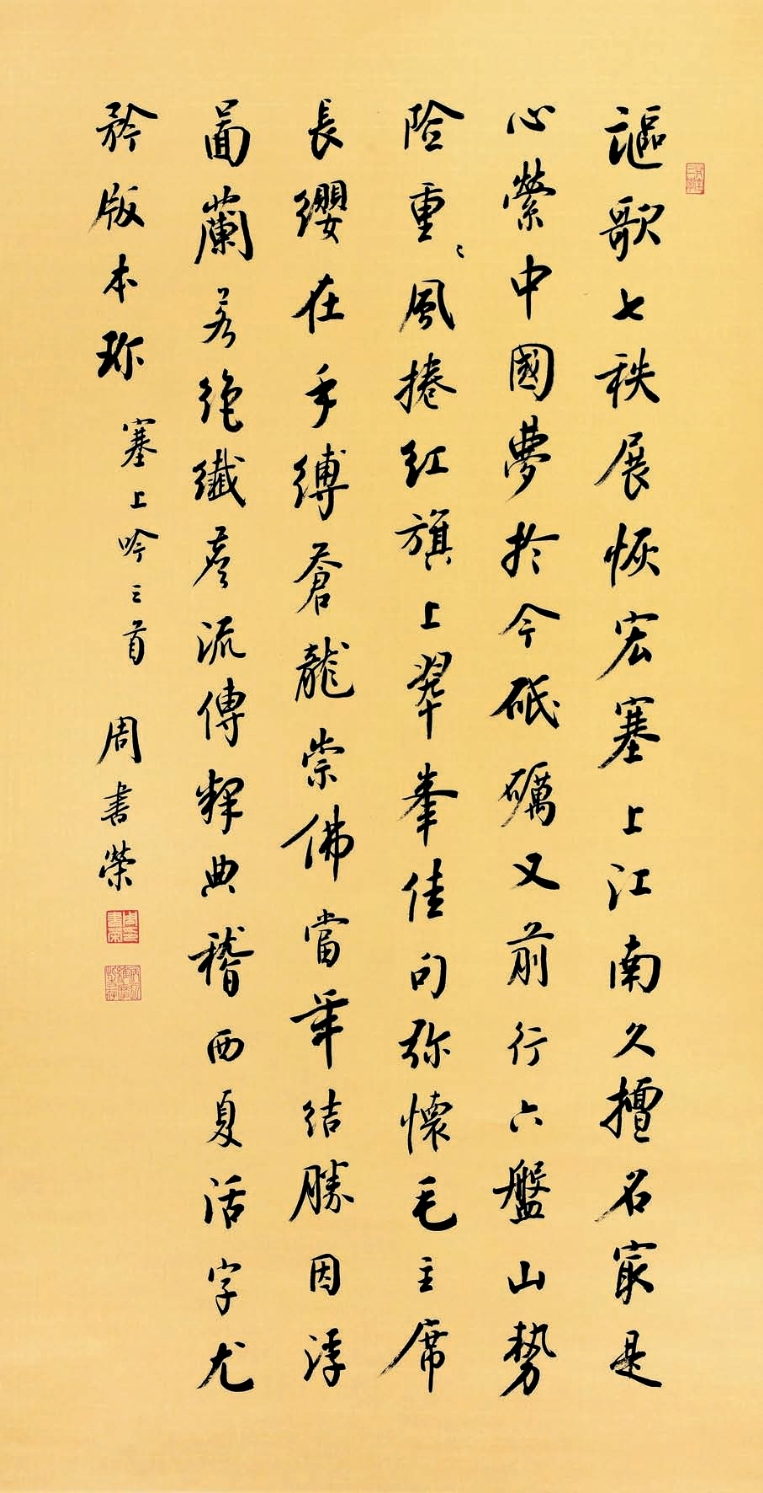 謳歌七秩展恢宏塞上江南久擅名最是
心縈中國夢於今砥礪又前行六盤山勢
險重〻風捲紅旗上翠峯佳句弥懷毛主席
長纓在手縛蒼龍崇佛當年結勝因浮
啚蘭若絶纖塵流傳釋典稽西夏活字尤
矜版本珍 塞上吟三首 周書榮